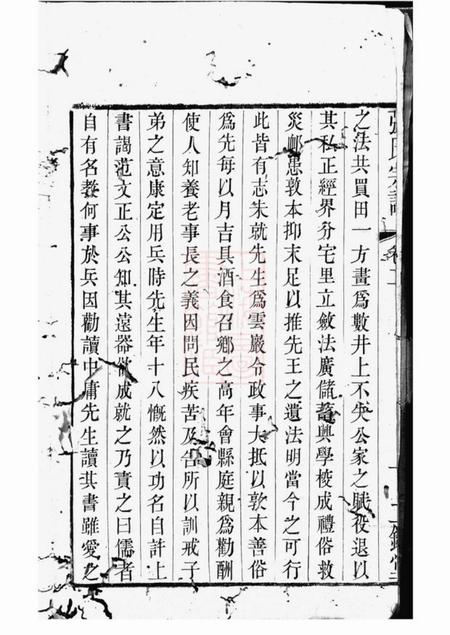 張氏宗譜
卷一
之法共買田一方畫爲數井上不失公家之賦役退以
其私正經界分宅里立斂法廣儲蓄興學校成禮俗救
災邮患敦本抑末足以推先王之遺法明當今之可行
此皆有志未就先生爲雲巖令政事大抵以敦本善俗
爲先每以月吉具酒食召鄉之高年會縣庭親爲勸酬
使人知養老事長之義因問民疾苦及告所以訓戒子
弟之意康定用兵時先生年十八慨然以功名自許上
書謁范文正公公知其遠器欲成就之乃責之曰儒者
自有名教何事於兵因勸讀中庸先生讀其書雖愛之